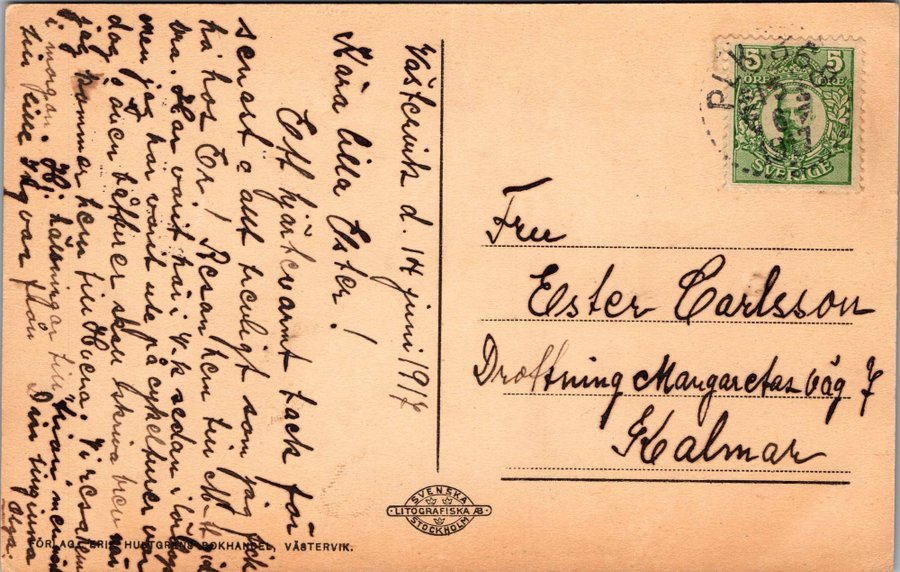 Västervik d. 14 juni 1917
Kära lilla Ester!
Ett hjärtevarmt tack för
senast o allt trevligt som jag fick
ha hos Er! Resan hem till
bra. Har varit här i V-k sedan i lördags
men jag har varit ute på cykelturer var
dag, även båtturer skall skriva
jag kommer hem till Vi resa hem
i morgon. Hälsningar till man
till lilla Ingvar från Din tillgivna
5 ÖRE 5 ÖRE
SVERIGE
PLK
Fru
Ester Carlsson
Drottning Margaretas väg 7
Kalmar
SVENSKA
LITOGRAFISKA AB.
STOCKHOLM
FÖRLAG, ERIK HULTGRENS BOKHANDEL, VÄSTERVIK.